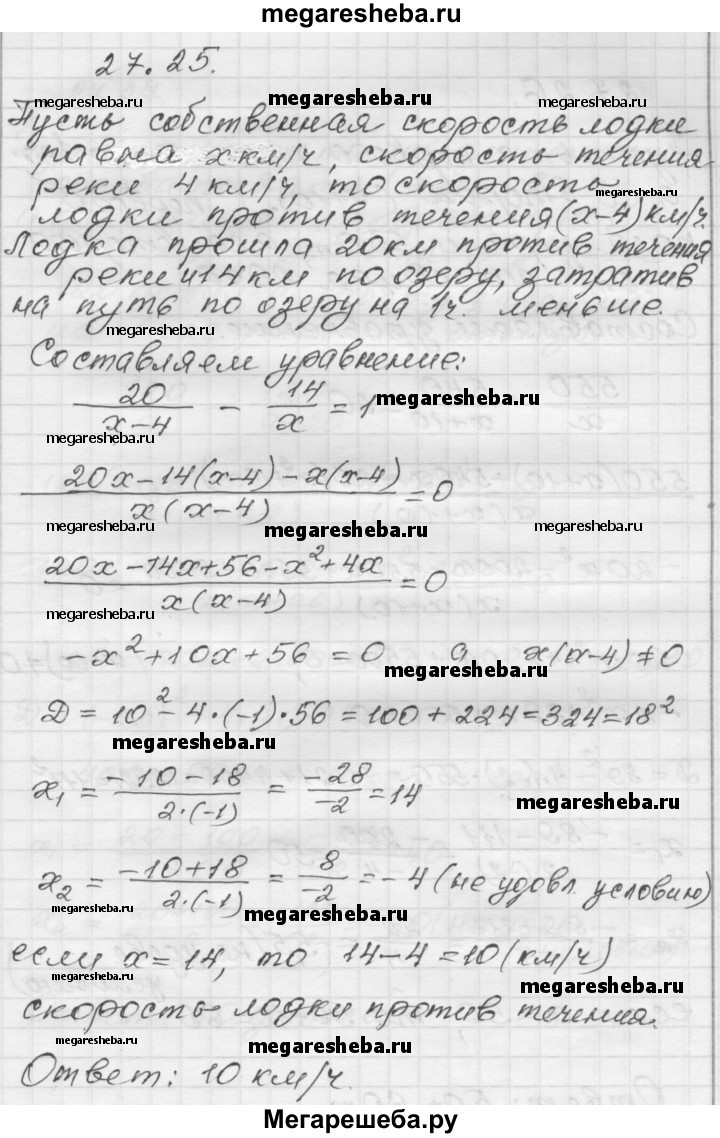 megaresheba.ru
27.25.
megaresheba.ru megaresheba.ru megaresheba.ru
Пусть собственная скорость лодки
равна x км/ч, скорость течения
megaresheba.ru
реки 4 км/ч, то скорость
megaresheba.ru
лодки против течения (x-4) км/ч.
Лодка прошла 20км против течения
реки и 14 км по озеру, затратив
на путь по озеру на 1ч. меньше.
megaresheba.ru
Составляем уравнение:
20/(x-4) - 14/x = 1
megaresheba.ru
megaresheba.ru
(20x-14(x-4)-x(x-4))/(x(x-4)) = 0
megaresheba.ru megaresheba.ru megaresheba.ru
(20x-14x+56-x²+4x)/(x(x-4)) = 0
megaresheba.ru
-x²+10x+56 = 0 x(x-4)≠0
megaresheba.ru
Д = 10²-4·(-1)·56 = 100+224=324=18²
megaresheba.ru
x₁ = (-10-18)/(2·(-1)) = -28/-2 = 14
megaresheba.ru
x₂ = (-10+18)/(2·(-1)) = 8/-2 = -4 (не удовл. условию)
megaresheba.ru megaresheba.ru megaresheba.ru
если x=14, то 14-4=10(км/ч)
megaresheba.ru megaresheba.ru
скорость лодки против течения.
megaresheba.ru megaresheba.ru megaresheba.ru
Ответ: 10 км/ч.
Мегарешеба.ру